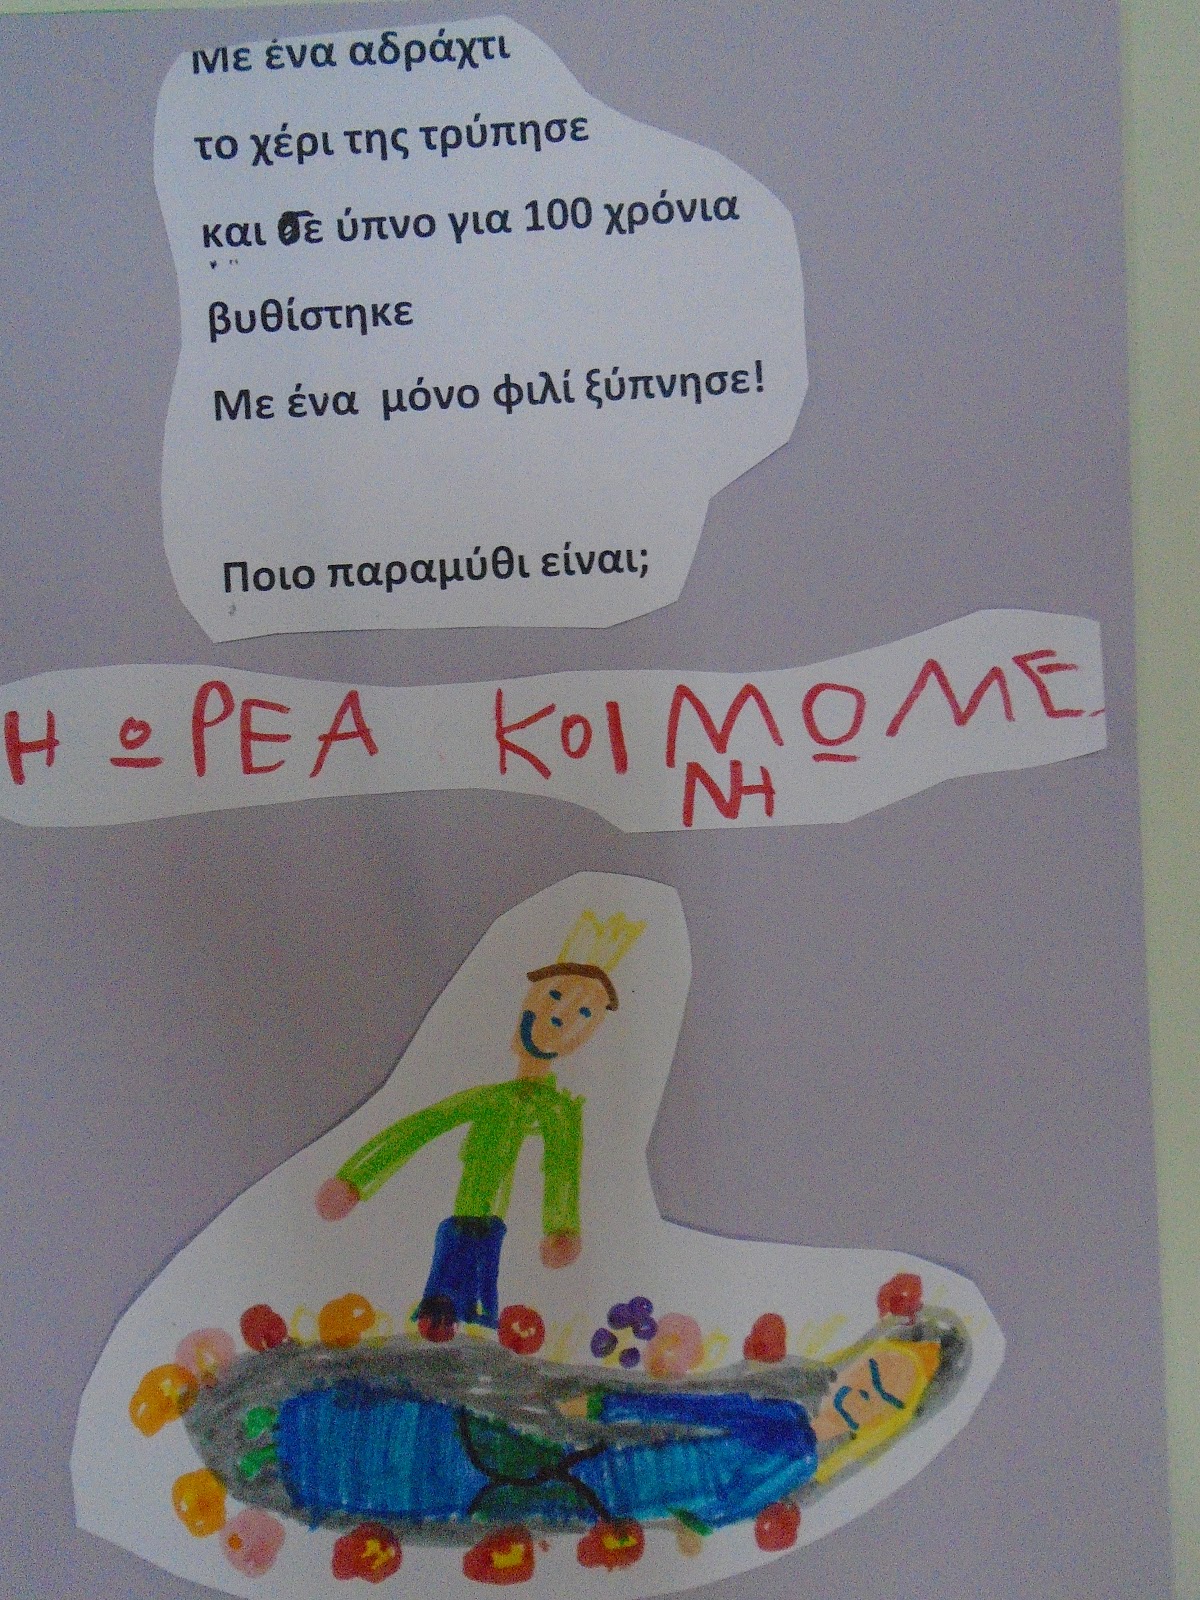 Με ένα αδράχτι
το χέρι της τρύπησε
και σε ύπνο για 100 χρόνια
βυθίστηκε
Με ένα μόνο φιλί ξύπνησε!
Ποιο παραμύθι είναι;
Η ΩΡΕΑ ΚΟΙΜΩΜΕ
ΝΗ